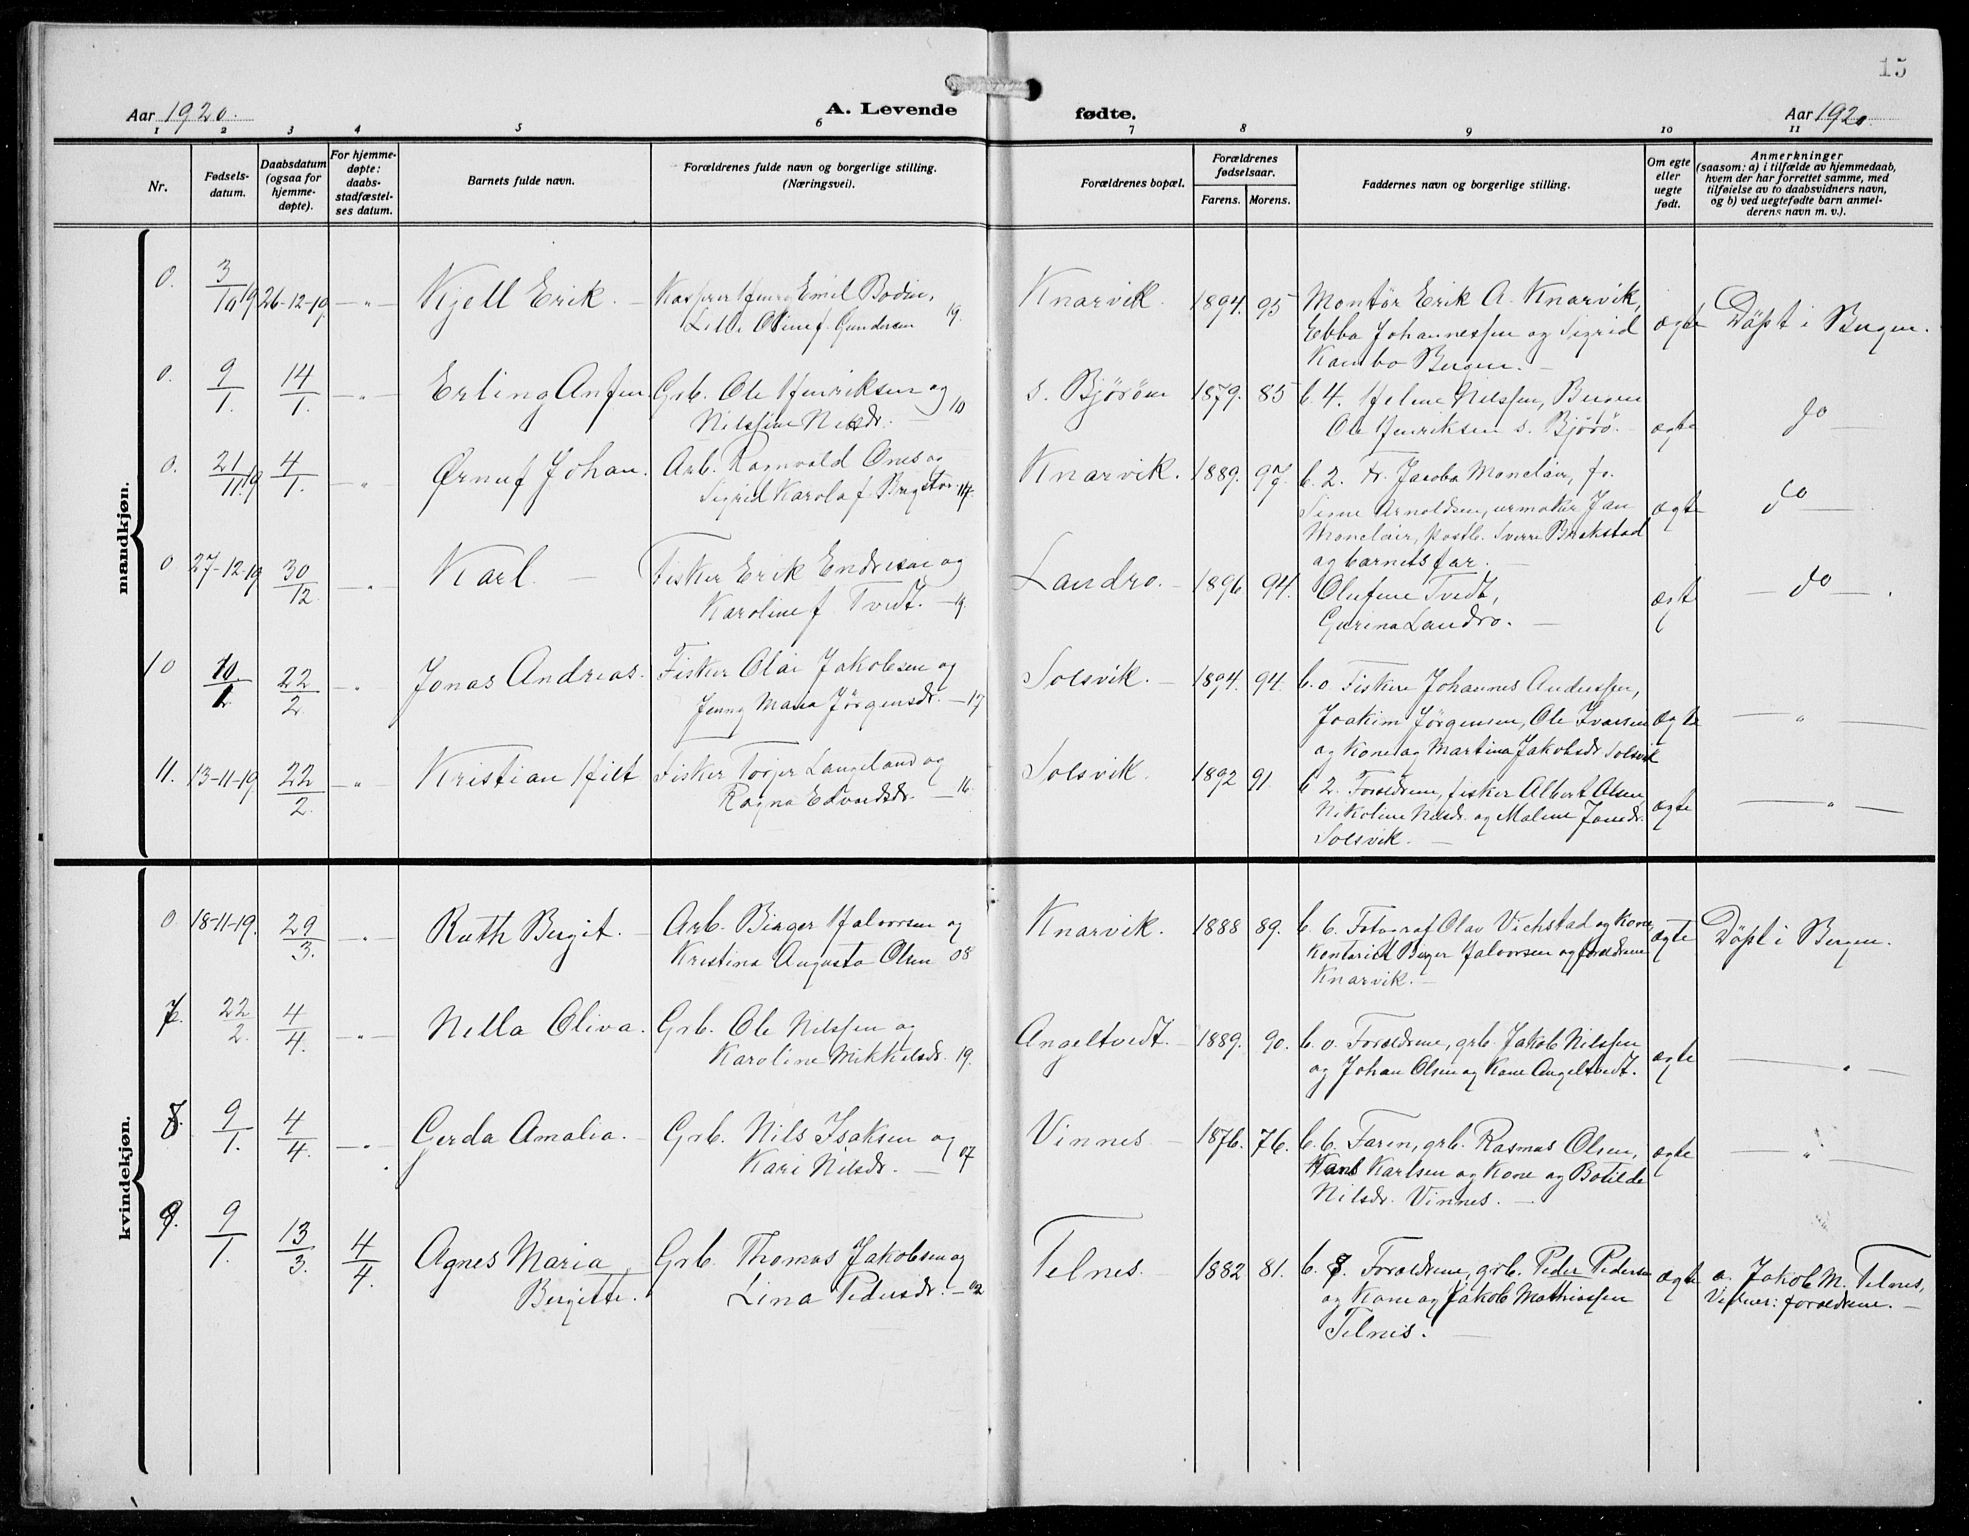 15
Aar 1920. A. Levende fødte. Aar 1920.
1 2 3 4 5 6 7 8 9 10 11
Nr.
Fødsels-
datum.
Daabsdatum
(ogsaa for
hjemme-
døpte).
For hjemme-
døpte:
daabs-
stadfæstel-
ses datum.
Barnets fulde navn.
Forældrenes fulde navn og borgerlige stilling.
(Næringsvei).
Forældrenes bopæl.
Forældrenes
fødselsaar.
Farens. Morens.
Faddernes navn og borgerlige stilling.
Om egte
eller
uegte
født.
Anmerkninger
(saasom: a) i tilfælde av hjemmedaab,
hvem der har forrettet samme, med
tilføielse av to daabsvidners navn,
og b) ved uegtefødte barn anmel-
derens navn m. v.).
mandkjøn.
0. 3/10 19 26-12-19 — " Kjell Erik. — Kasper Henry Emil Bodin,
Lilli Oline f. Gundersen 19.
Knarvik. 1894. 95 Montør Erik A. Knarvik,
Ebba Johannessen og Sigrid
Kambo Bergen. —
ægte Døpt i Bergen.
0. 9/1. 14/1. — " — Erling Anfin Grb. Ole Henriksen og
Nilssine Nilsdr. — 10
s. Bjørøen 1879. 85 b. 4. Helene Nilssen, Bergen
Ole Henriksen s. Bjørø. —
ægte do —
0. 21/11 19 4/1. — " Ørnuf Johan. Arb. Ramvald Ones og
Sigrid Karola f. Bergstø. 14.
Knarvik. 1889. 97. b. 2. Fr. Jacoba Monclair, fr.
Signe Arnoldsen, urmaker Jan
Monclair, postb. Sverre Brakstad
og barnets far. —
ægte do —
0 27-12-19 30/12. — " Karl. — Fisker Erik Endresen og
Karoline f. Tvedt. — 19.
Landro. — 1896 94. Olufine Tvedt,
Gurina Landro. —
ægt — do — .
10 10/2 22/2. — " Jonas Andreas. Fisker Olai Jakobsen og
Jenny Maria Jørgensdr. — 17
Solsvik. — 1894. 94. b. o. Fiskere Johannes Anderssen,
Joakim Jørgensen, Ole Ivarsen
og Kone og Martina Jakobsdr. Solsvik
ægte — " —
11. 13-11-19 22/2. — " — Kristian Hilt Fisker Torger Langeland og
Ragna Edvardsdr. — 16.
Solsvik. 1892 91. b 2. Forældrene, fisker Albert Olsen,
Nikoline Nilsdr. og Malene Jonsdr.
Solsvik. —
ægte — " —
kvindekjøn.
0. 18-11-19. 29/3. — " — Ruth Bergit. — Arb. Birger Halvorsen og
Kristina Augusta Olsen 08
Knarvik. 1888 89. b. 6. Fotograf Olav Vichstad og Kone
Kontorist Birger Halvorsen og forældrene
Knarvik. —
ægte Døpt i Bergen.
7. 22/2. 4/4. — " — Nella Oliva. Grb. Ole Nilssen og
Karoline Mikkelsdr. 19.
Angeltvedt. — 1889. 90. b. o. Forældrene, grb. Jakob Nilssen
og Johan Olsen og Kone Angeltvedt.
ægte — " —
8. 9/1. 4/4. — " Gerda Amalia. — Grb. Nils Isaksen og
Kari Nilsdr. — 07
Vinnes — 1876. 76. b. 6. Faren, grb. Rasmus Olsen,
Hans Karlsen og Kone og Botilde
Nilsdr. Vinnes. —
ægte — " —
9. 9/1. 13/3. 4/4. Agnes Maria
Bergitte. Grb. Thomas Jakobsen og
Lina Pedersdr. — 02
Telnes. — 1882 81. b. 8. Forældrene, grb. Peder Pedersen
og Kone og Jakob Mathiassen
Telnes. —
ægte a. Jakob M. Telnes,
Vidner: forældrene. —